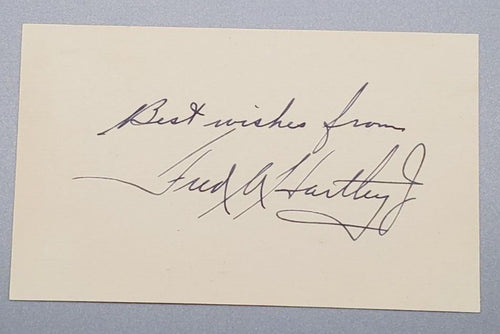 Best wishes from
Fred A Hartley J